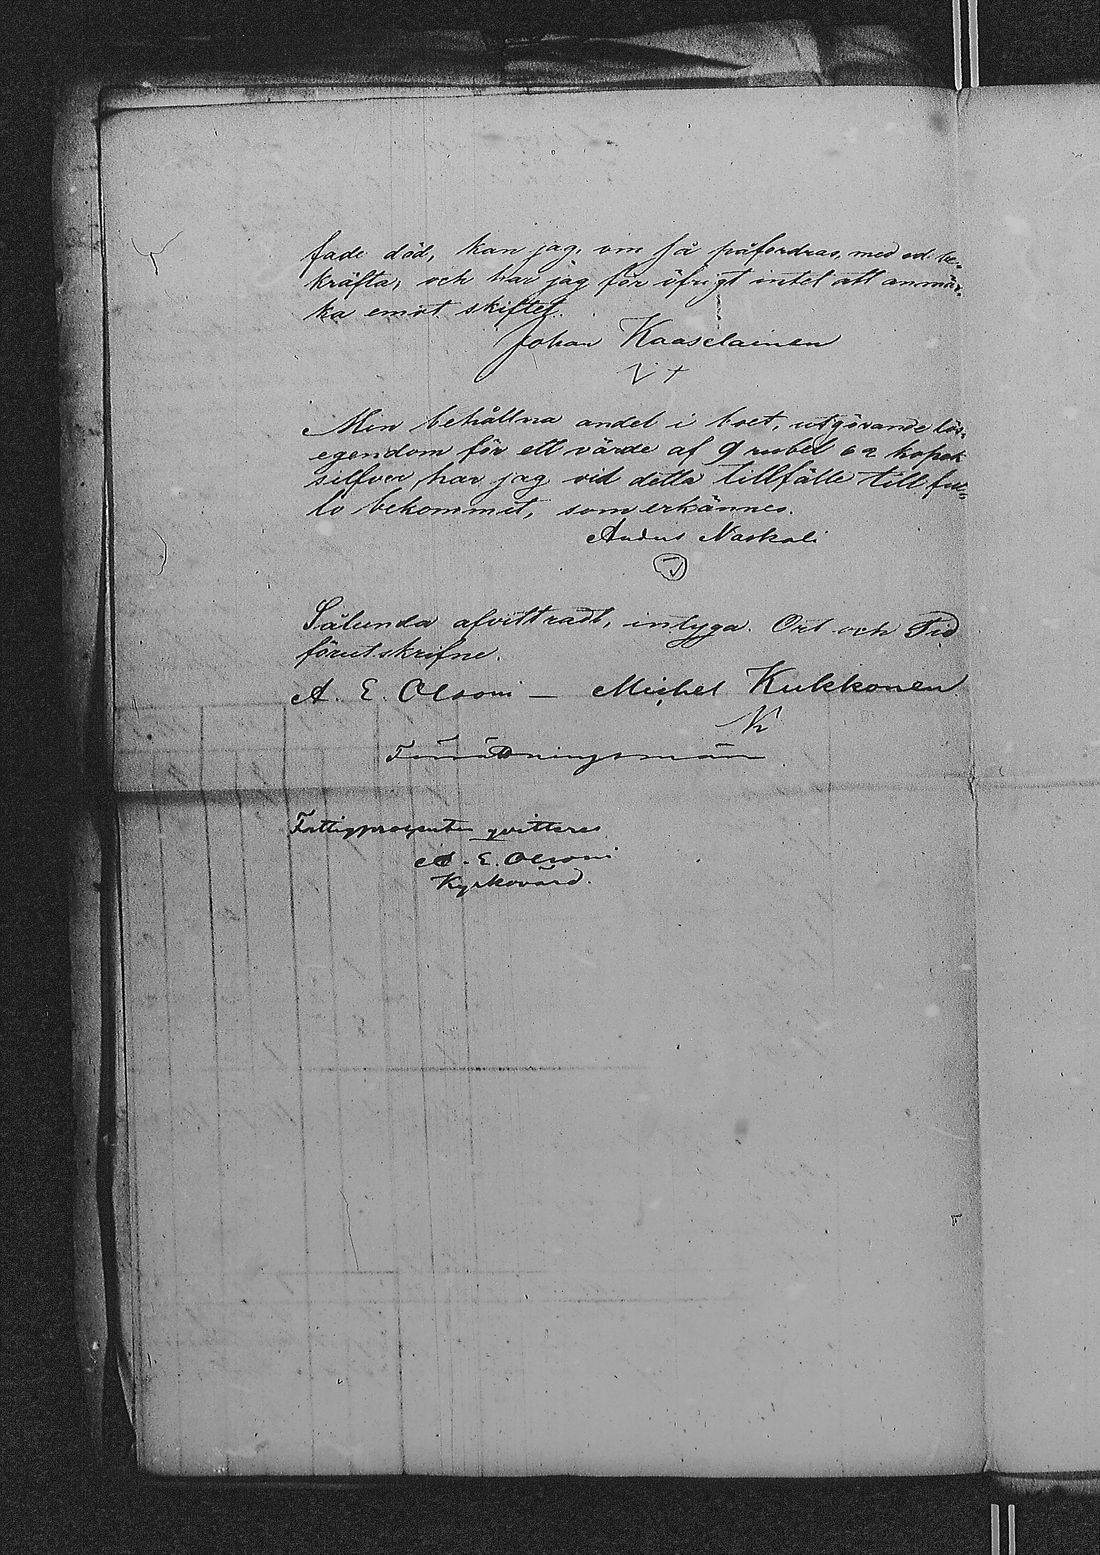 fade död, kan jag, om så påfordras, med ed be-
kräfta, och har jag för öfrigt intet att anmär-
ka emot skiftet.
Johan Kaaselainen
Min behållna andel i boet, utgörande lös-
egendom för ett värde af 9 rubel 62 kopek
silfver har jag vid detta tillfälle till ful-
lo bekommit, som erkännes.
Anders Naskali
Sålunda afvittradt, intyga. Ort och Tid
förutskrifne.
A. E. Olsoni — Michel Kukkonen
K
Fattigprocenten qvitteras
A. E. Olsoni
Kyrkovärd.